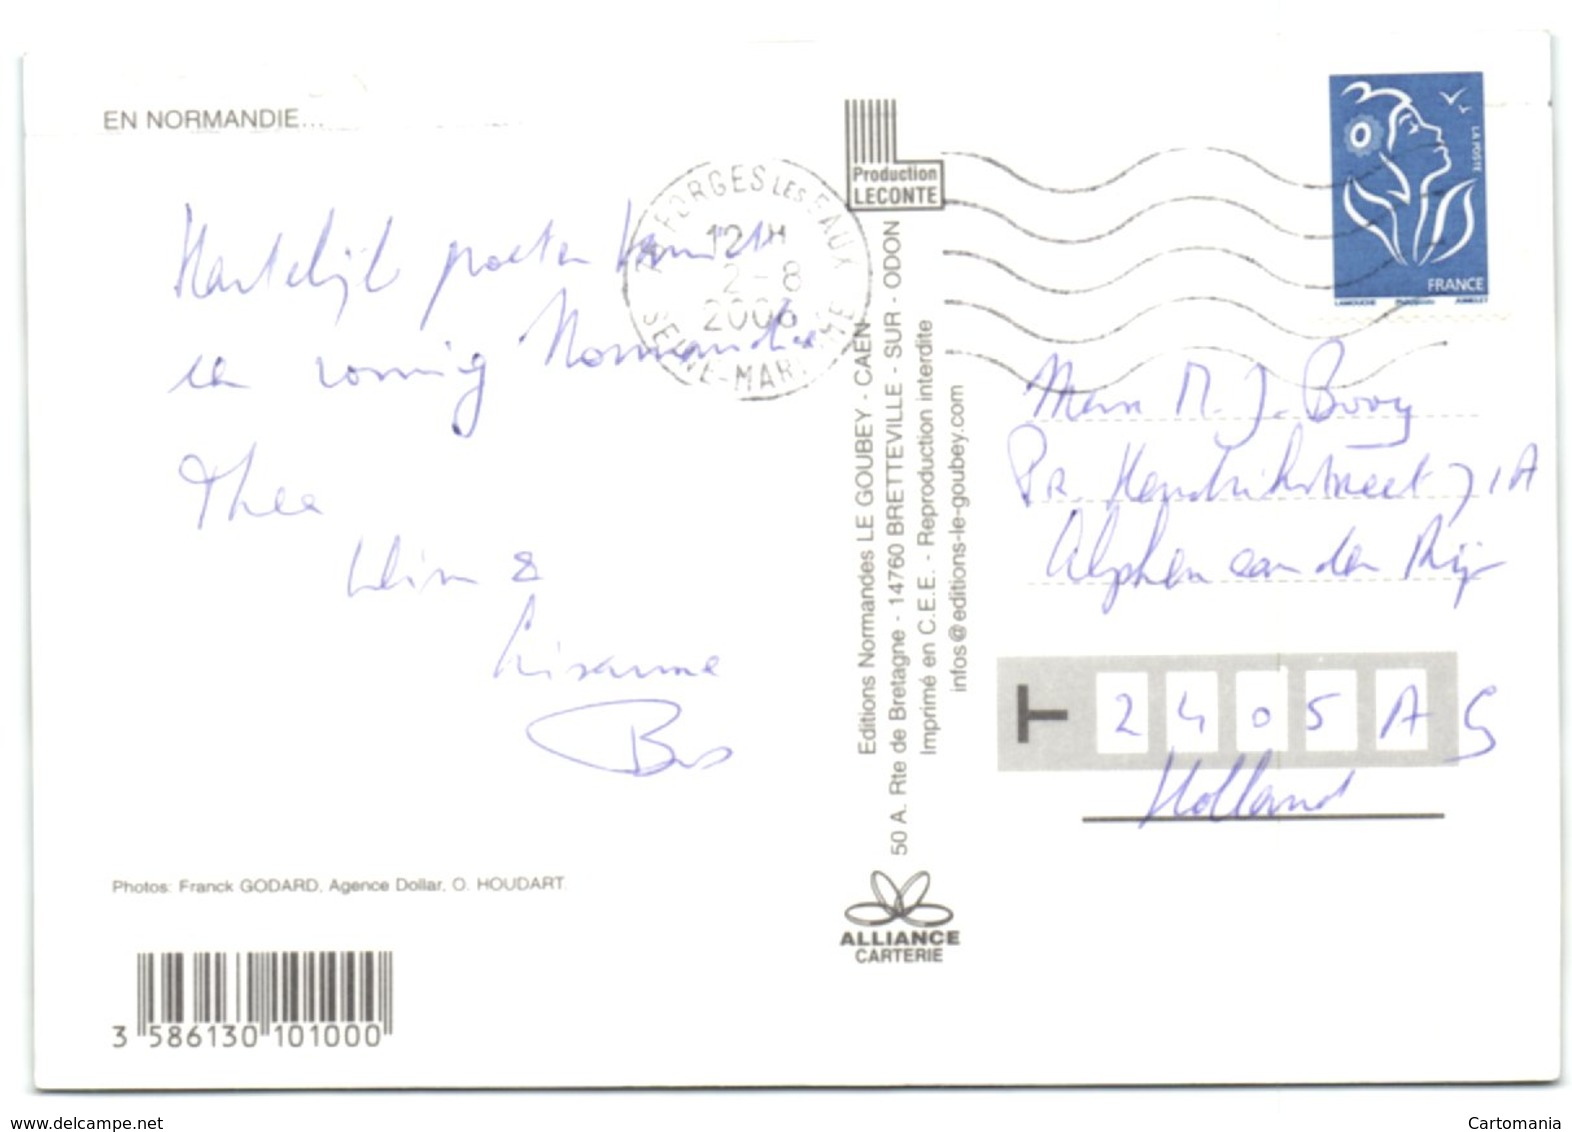 EN NORMANDIE...
Hartelijk groeten vanuit
en zonnig Normandie
Thea
Wim &
Lisanne
Bas
Photos: Franck GODARD, Agence Dollar, O. HOUDART.
3 586130 101000
FORGES LES EAUX
12 H
2-8
2006
SEINE-MARITIME
Production
LECONTE
Editions Normandes LE GOUBEY - CAEN
50 A. Rte de Bretagne - 14760 BRETTEVILLE - SUR - ODON
Imprimé en C.E.E. - Reproduction interdite
infos@editions-le-goubey.com
ALLIANCE
CARTERIE
LA POSTE
FRANCE
M. J. Booy
Pr. Hendrikstraat 71A
Alphen aan den Rijn
T 2405 A G
Holland
www.delcampe.net
Cartomania